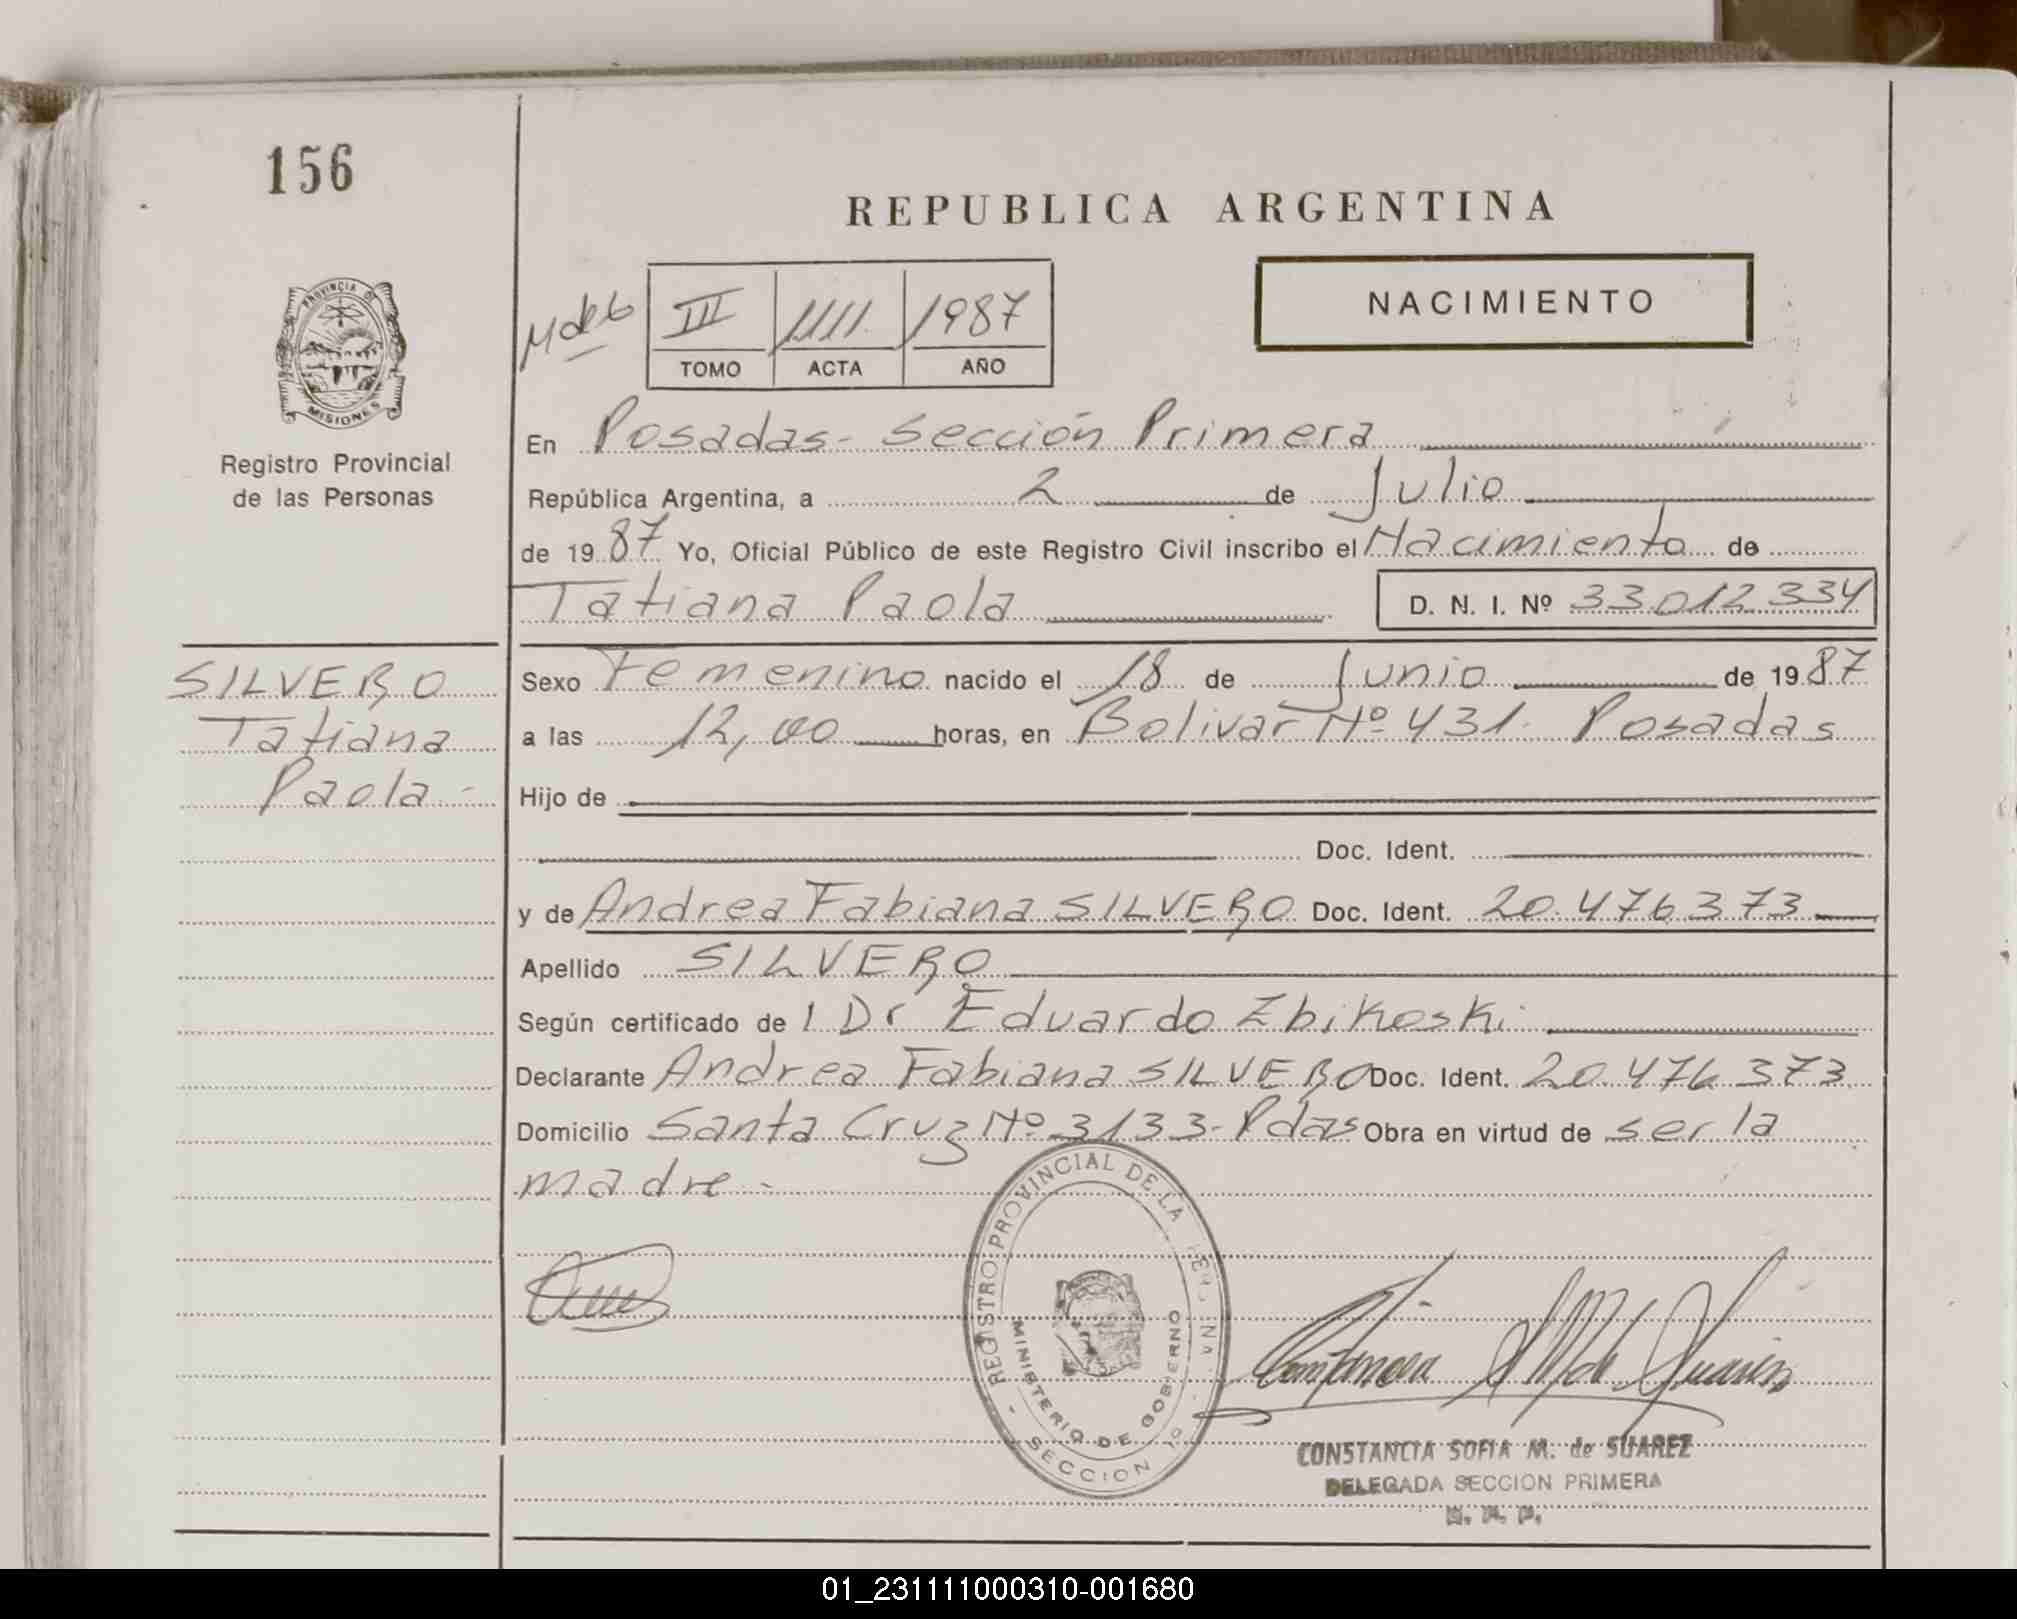 156
REPUBLICA ARGENTINA
NACIMIENTO
III 1111 1987
TOMO ACTA AÑO
PROVINCIA DE
MISIONES
Registro Provincial
de las Personas
En Posadas - Sección Primera
República Argentina, a 2 de Julio
de 1987 Yo, Oficial Público de este Registro Civil inscribo el Nacimiento de
Tatiana Paola D. N. I. Nº 33.012.334
SILVERO
Tatiana
Paola -
Sexo Femenino nacido el 18 de Junio de 1987
a las 12,00 horas, en Bolivar Nº 431. Posadas
Hijo de
Doc. Ident.
y de Andrea Fabiana SILVERO Doc. Ident. 20.476.373
Apellido SILVERO
Según certificado de l Dr Eduardo Zbikoski
Declarante Andrea Fabiana SILVERO Doc. Ident. 20.476.373
Domicilio Santa Cruz Nº 3133 - Pdas Obra en virtud de ser la
madre -
REGISTRO PROVINCIAL DE LA
MINISTERIO DE GOBIERNO
SECCION
CONSTANCIA SOFIA M. de SUAREZ
DELEGADA SECCION PRIMERA
01_231111000310-001680